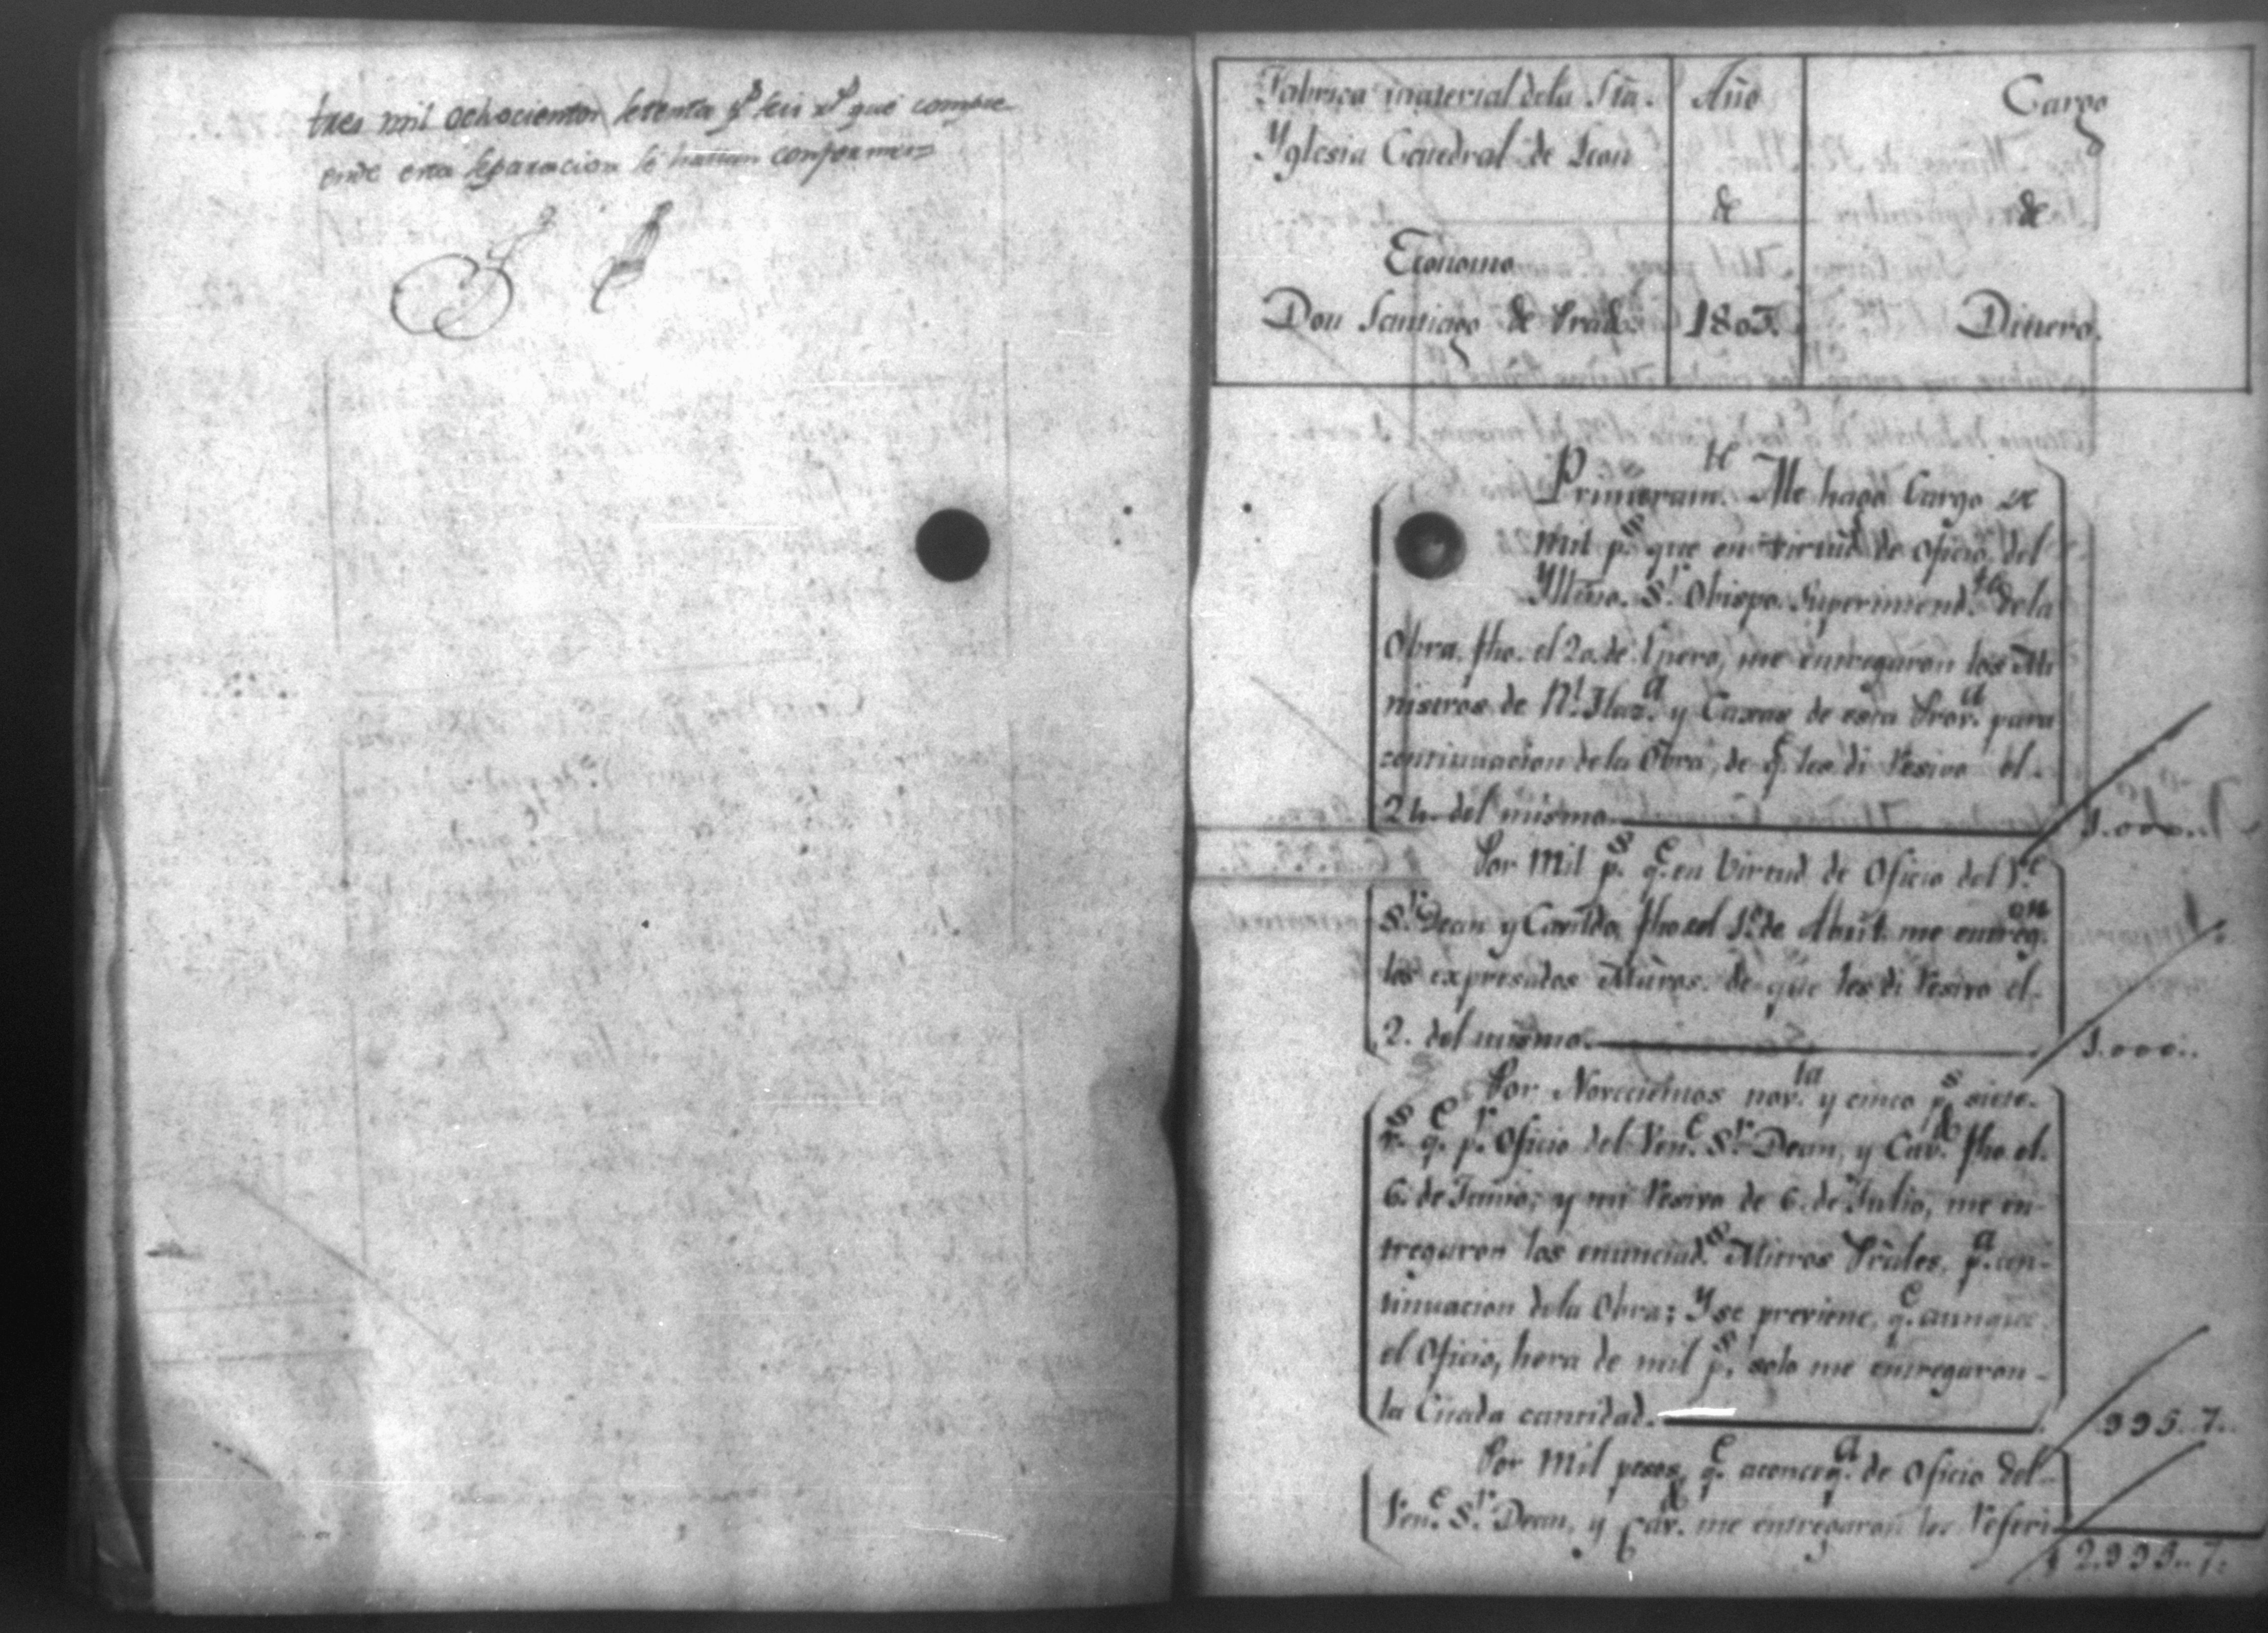 tres mil ochocientos setenta p.s seis r.s que compre
ende esta separacion se hallan conformes=
Fabrica material dela Sta.
Yglesia Catedral de Leon
Economo
Don Santiago de Prado
Año
de
1803.
Cargo
de
Dinero.
Primeram.te Me hago Cargo de
mil p.s que en virtud de oficio, del
Yllmo. S.r Obispo Superintend.te dela
Obra. fho. el 20. de Enero, me entregaron los Mi
nistros de R.l Haz.a y Caxas de esta Prov.a para
continuacion dela Obra, de q.e les di Resivo el.
24. del mismo. 1.000..
Por Mil p.s q.e en Virtud de Oficio del V.e
S.r Dean y Cavildo, fho. el 1.o de Abril. me entreg.on
los expresados Mñros. de que les di Resivo el.
2. del mismo. 1.000..
Por Novecientos nov.ta y cinco p.s siete.
r.s q.e p.r Oficio del Ven.e S.r Dean, y Cav.do fho el.
6. de Junio, y mi Resivo de 6. de Julio, me en-
tregaron los enunciad.s Mñros Prãles, p.a con-
tinuacion dela Obra; Y se previene, q.e aunque
el Oficio, hera de mil p.s solo me entregaron
la Citada cantidad. 995..7..
Por Mil pesos, q.e aconceq.a de Oficio del-
Ven.e S.r Dean, y Cav.do me entregaron los Referi
2.995..7.